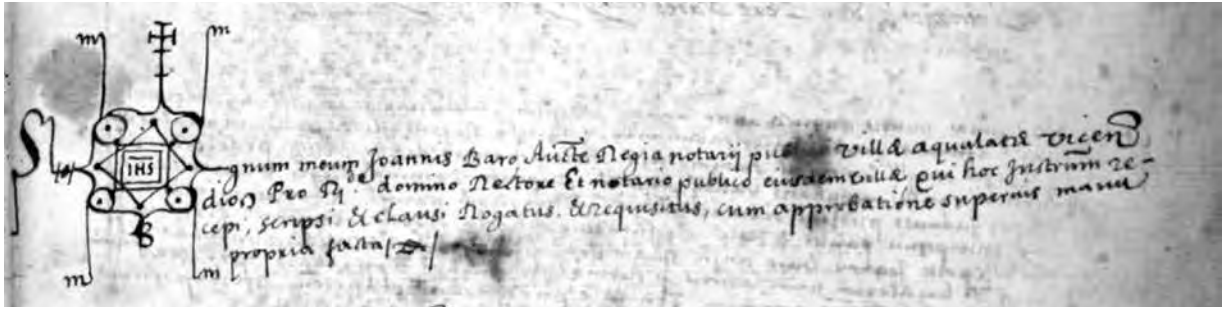 m m
IHS
Si gnum meum Joannis Baro Aucte Regia notarij publici villæ aqualatæ vicen
dioc Pro R.do domino Rectore Et notario publico eiusdem villæ qui hoc Instrum re-
cepi, scripsi & clausi Rogatus & requisitus, cum approbatione superius manu
propria facta
B
m m